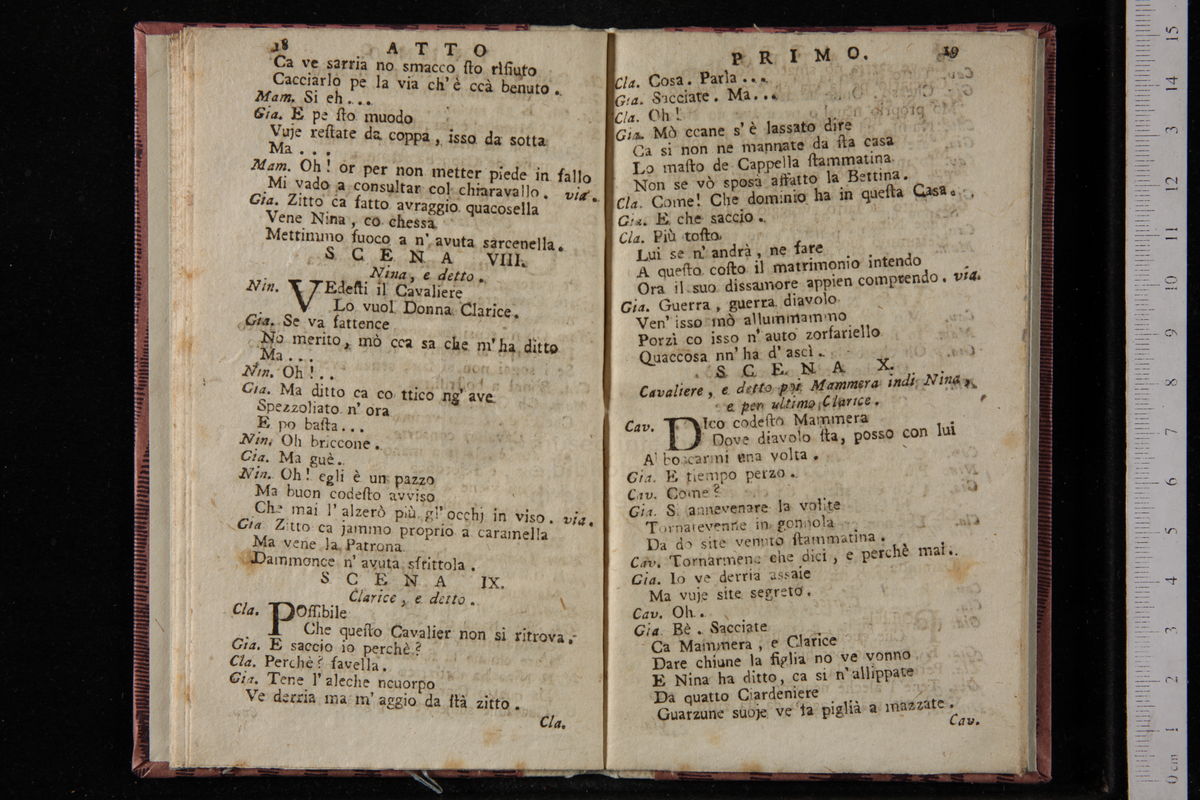 18 ATTO
Ca ve sarria no smacco ſto riſiuto
Cacciarlo pe la via ch' è ccà benuto.
Mam. Si eh...
Gia. E pe ſto muodo
Vuje reſtate da coppa, isso da sotta
Ma...
Mam. Oh! or per non metter piede in fallo
Mi vado a consultar col chiaravallo. via.
Gia. Zitto ca fatto avraggio quacosella
Vene Nina, co chessa
Mettimmo fuoco a n' avuta sarcenella.
SCENA VIII.
Nina, e detto.
Nin. VEdeſti il Cavaliere
Lo vuol Donna Clarice.
Gia. Se va fattence
No merito, mò cca sa che m' ha ditto
Ma...
Nin. Oh!..
Gia. Ma ditto ca co ttico ng' ave
Spezzoliato n' ora
E po baſta...
Nin. Oh briccone.
Gia. Ma guè.
Nin. Oh! egli è un pazzo
Ma buon codeſto avviso
Che mai l' alzerò più gl' occhj in viso. via.
Gia Zitto ca jammo proprio a caramella
Ma vene la Patrona
Dammonce n' avuta sfrittola.
SCENA IX.
Clarice, e detto.
Cla. POſſibile
Che queſto Cavalier non si ritrova.
Gia. E saccio io perchè?
Cla. Perchè? favella.
Gia. Tene l' aleche ncuorpo
Ve derria ma m' aggio da ſtà zitto.
Cla.
PRIMO. 19
Cla. Cosa. Parla...
Gia. Sacciate. Ma...
Cla. Oh!
Gia. Mò ccane s' è lassato dire
Ca si non ne mannate da ſta casa
Lo maſto de Cappella ſtammatina
Non se vò sposà affatto la Bettina.
Cla. Come! Che dominio ha in queſta Casa.
Gia. E che saccio.
Cla. Più toſto
Lui se n' andrà, ne fare
A queſto coſto il matrimonio intendo
Ora il suo dissamore appien comprendo. via.
Gia. Guerra, guerra diavolo
Ven' isso mò allummammo
Porzì co isso n' auto zorfariello
Quaccosa nn' ha d' ascì.
SCENA X.
Cavaliere, e detto poi Mammera indi Nina,
e per ultimo Clarice.
Cav. DIco codeſto Mammera
Dove diavolo ſta, posso con lui
Abboccarmi una volta.
Gia. E tiempo perzo.
Cav. Come?
Gia. S' annevenare la volite
Tornatevenne in gonnola
Da do site venuto ſtammatina.
Cav. Tornarmene che dici, e perchè mai..
Gia. Io ve derria assaie
Ma vuje site segreto.
Cav. Oh.
Gia Bè. Sacciate
Ca Mammera, e Clarice
Dare chiune la figlia no ve vonno
E Nina ha ditto, ca si n' allippate
Da quatto Ciardeniere
Guarzune suoje ve fa piglià a mazzate.
Cav.